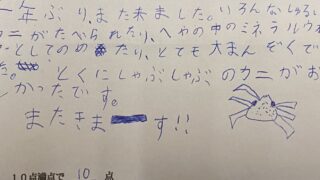 一年ぶり、また来ました。いろんなしゅるい
カニがたべられたり、へやの中のミネラルウォ
ーとしてのめたり、とても大まんぞくで
た。とくにしゃぶしゃぶのカニがお
しかったです。
またきます!!
10点満点で 10 点